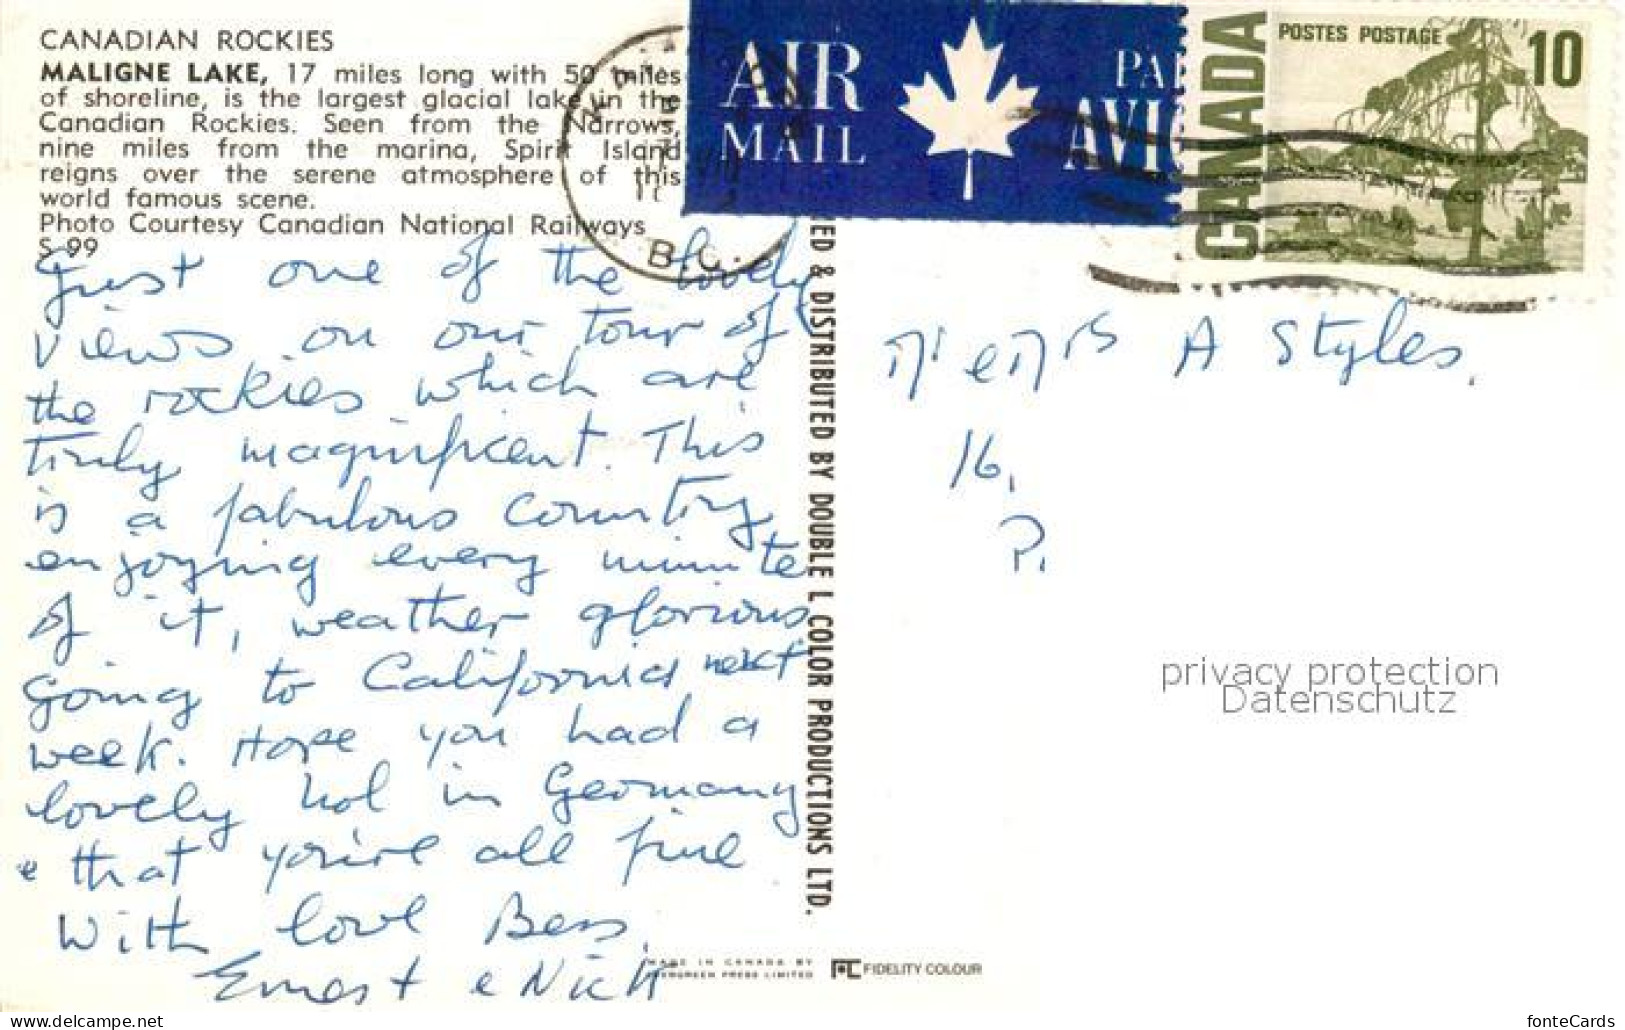 CANADIAN ROCKIES
MALIGNE LAKE, 17 miles long with 50 miles
of shoreline, is the largest glacial lake in the
Canadian Rockies. Seen from the Narrows,
nine miles from the marina, Spirit Island
reigns over the serene atmosphere of this
world famous scene.
Photo Courtesy Canadian National Railways
S-99
Just one of the lovely
views on our tour of
the rockies which are
truly magnificent. This
is a fabulous country
enjoying every minute
of it, weather glorious
going to California next
week. Hope you had a
lovely hol in Germany
e that you're all fine
With love Bess,
Ernest e Nick
AIR
MAIL
PA
AVI
CANADA
POSTES POSTAGE
10
B.C.
11
A Styles,
16,
P.
privacy protection
Datenschutz
ED & DISTRIBUTED BY DOUBLE L COLOR PRODUCTIONS LTD.
MADE IN CANADA BY
EVERGREEN PRESS LIMITED
FIDELITY COLOUR
www.delcampe.net
fonteCards